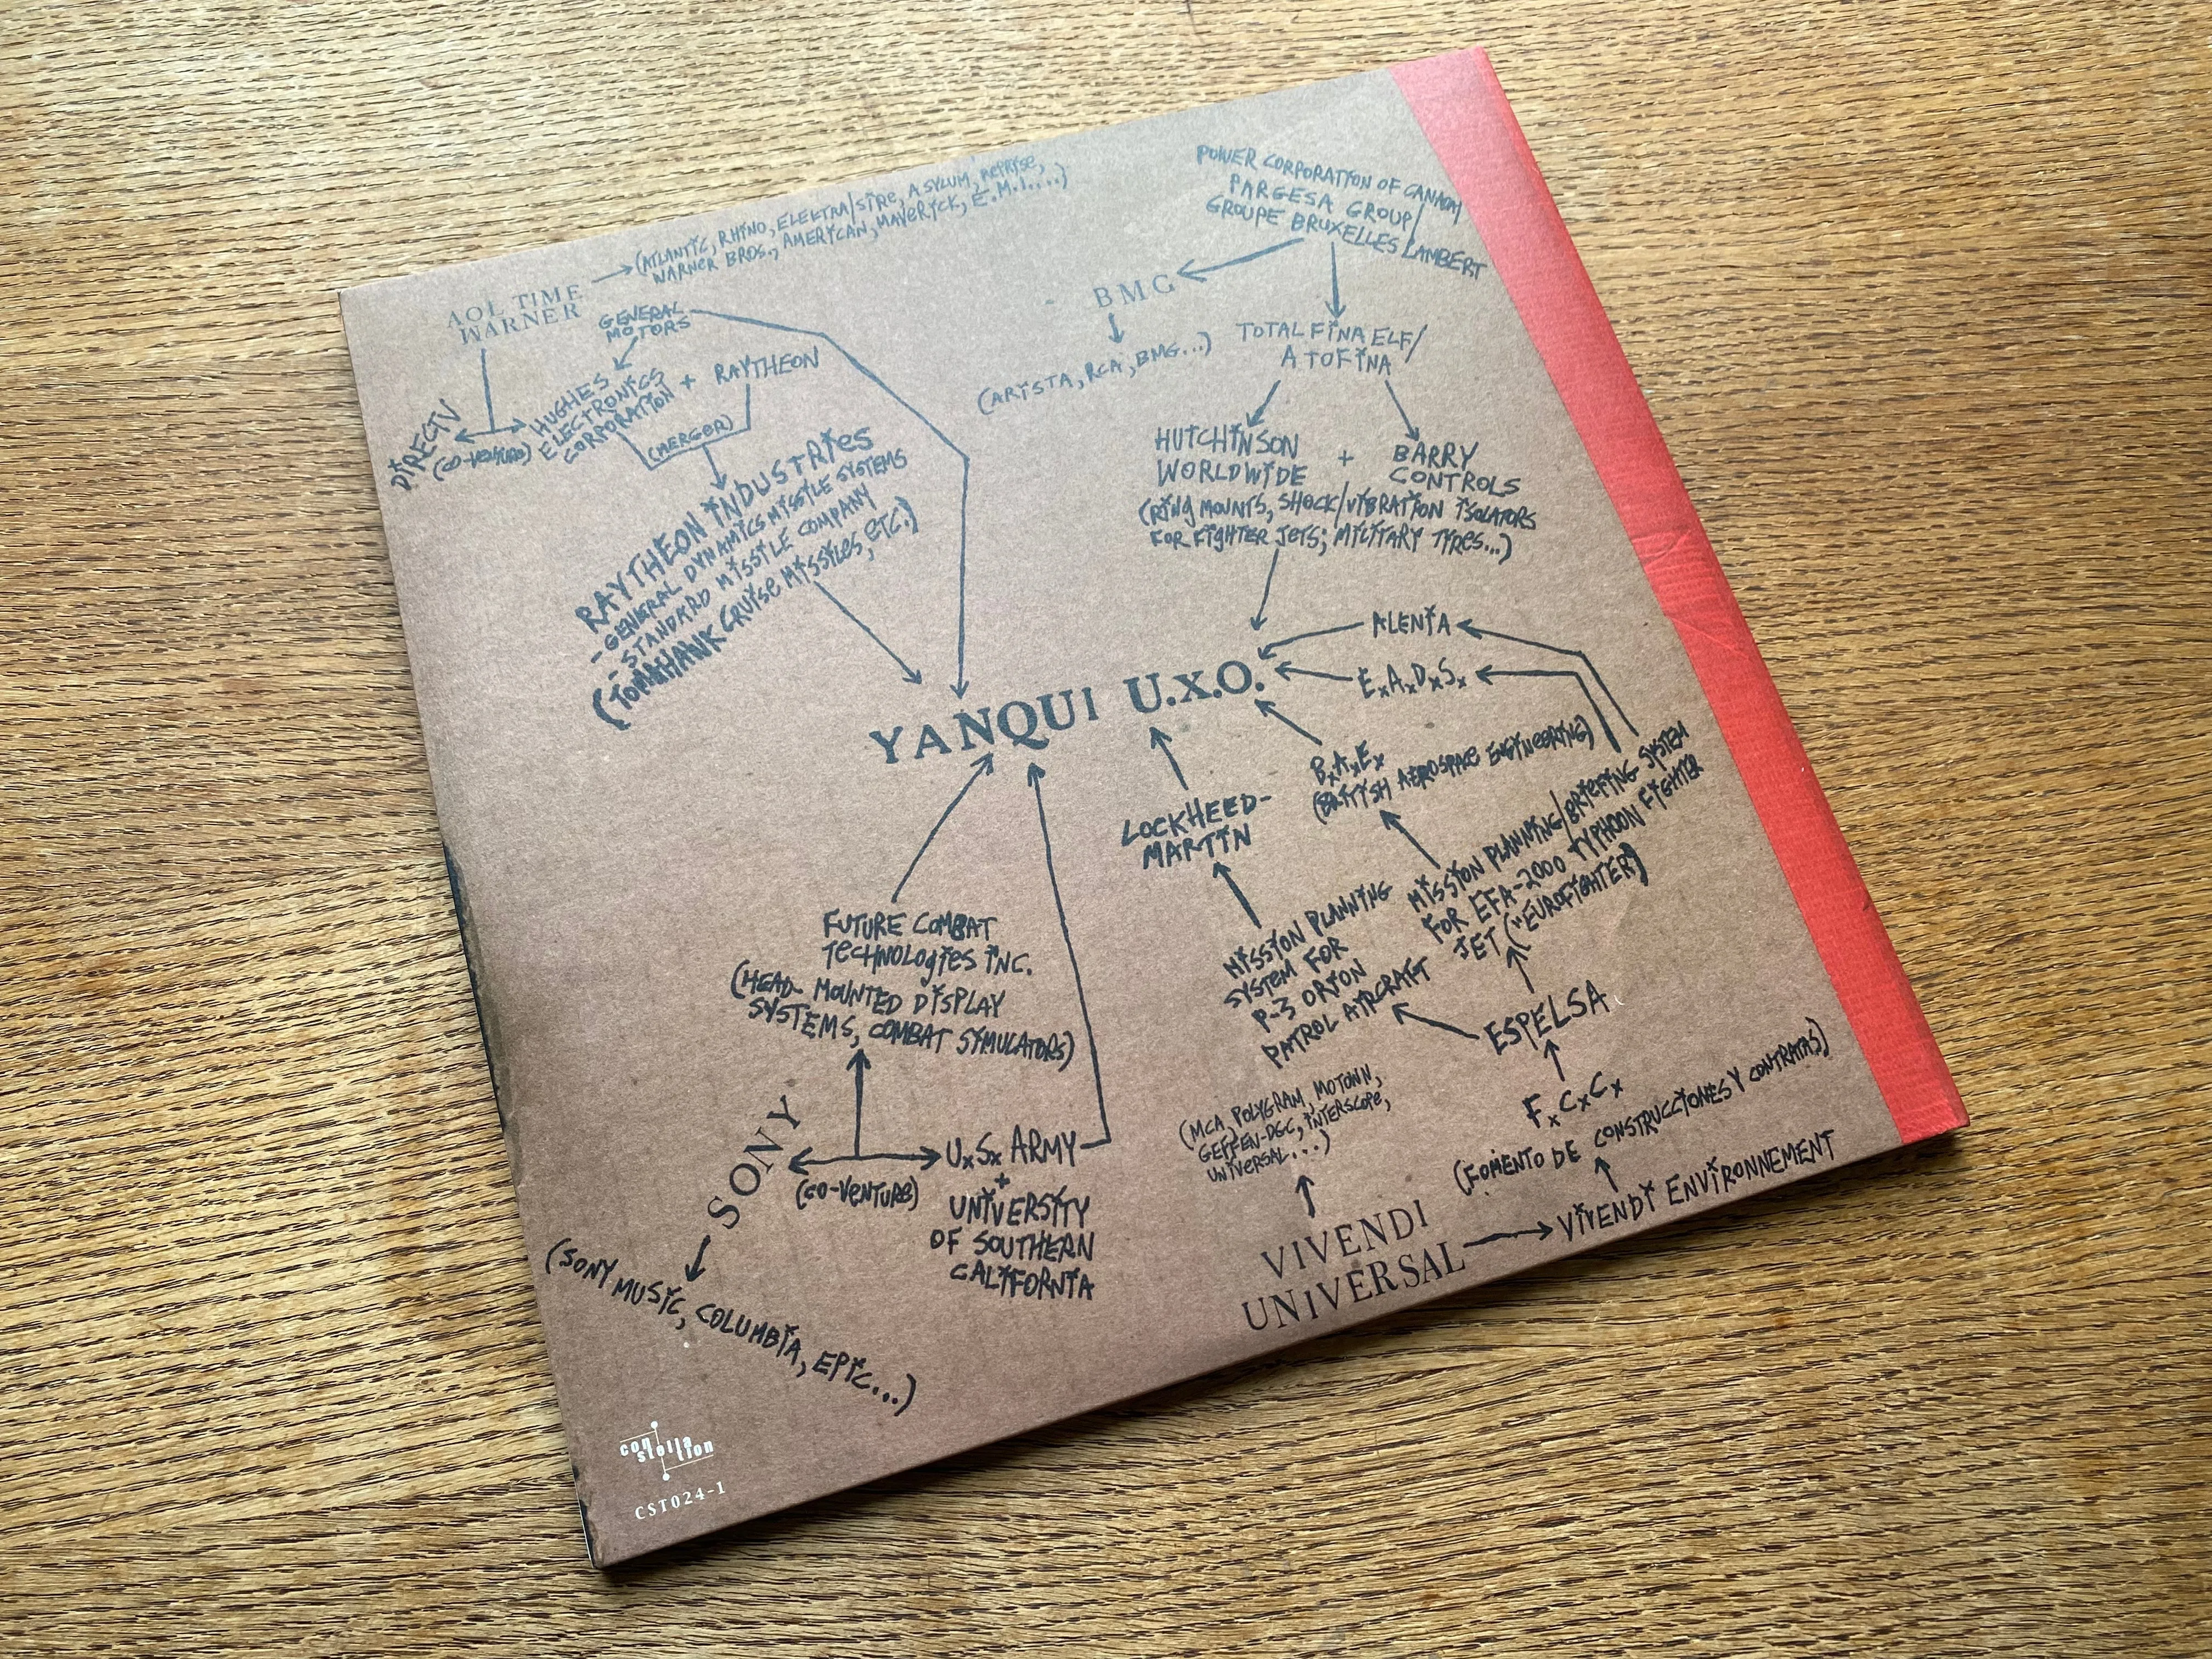 (ATLANTIC, RHINO, ELEKTRA/SIRE, ASYLUM, REPRISE,
WARNER BROS., AMERICAN, MAVERICK, E.M.I....)
AOL TIME
WARNER
GENERAL
MOTORS
DIRECTV
(CO-VENTURE)
HUGHES
ELECTRONICS
CORPORATION
+
RAYTHEON
(MERGER)
RAYTHEON INDUSTRIES
- GENERAL DYNAMICS MISSILE SYSTEMS
- STANDARD MISSILE COMPANY
(TOMAHAWK CRUISE MISSILES, ETC.)
POWER CORPORATION OF CANADA/
PARGESA GROUP/
GROUPE BRUXELLES LAMBERT
BMG
(ARISTA, RCA, BMG...)
TOTAL FINA ELF/
ATOFINA
HUTCHINSON
WORLDWIDE
+
BARRY
CONTROLS
(RING MOUNTS, SHOCK/VIBRATION ISOLATORS
FOR FIGHTER JETS; MILITARY TYRES...)
YANQUI U.X.O.
ALENIA
E.A.D.S.
B.A.E.
(BRITISH AEROSPACE ENGINEERING)
LOCKHEED-
MARTIN
MISSION PLANNING/BRIEFING SYSTEM
FOR EFA-2000 TYPHOON FIGHTER
JET ("EUROFIGHTER")
MISSION PLANNING
SYSTEM FOR
P-3 ORION
PATROL AIRCRAFT
ESPELSA
F.C.C.
(FOMENTO DE CONSTRUCCIONES Y CONTRATAS)
VIVENDI ENVIRONNEMENT
(MCA, POLYGRAM, MOTOWN,
GEFFEN-DGC, INTERSCOPE,
UNIVERSAL...)
VIVENDI
UNIVERSAL
FUTURE COMBAT
TECHNOLOGIES INC.
(HEAD-MOUNTED DISPLAY
SYSTEMS, COMBAT SYMULATORS)
SONY
(CO-VENTURE)
U.S. ARMY
+
UNIVERSITY
OF SOUTHERN
CALIFORNIA
(SONY MUSIC, COLUMBIA, EPIC...)
constellation
CST024-1